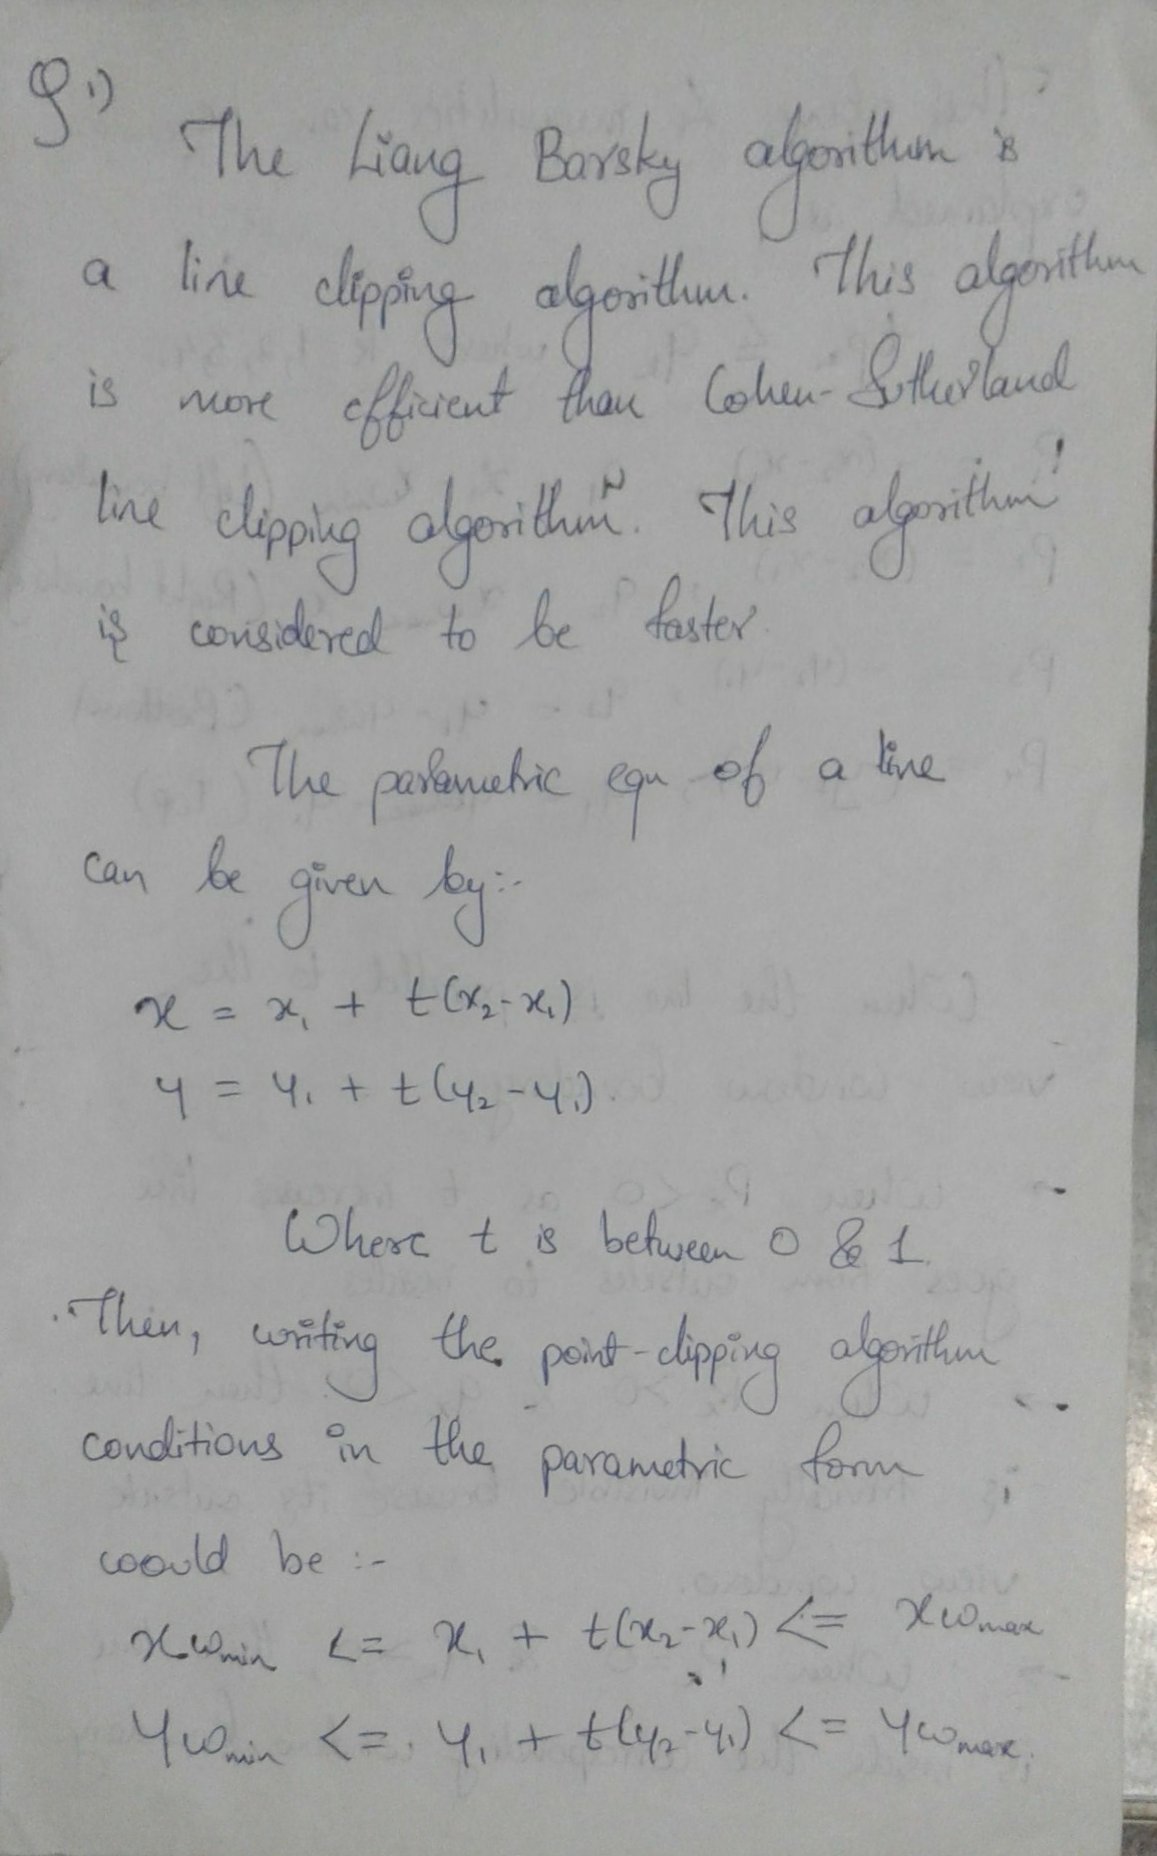 Q 1)
The Liang Barsky algorithm is
a line clipping algorithm. This algorithm
is more efficient than Cohen-Sutherland
line clipping algorithm. This algorithm
is considered to be faster.
The parametric equn of a line
can be given by:-
x = x₁ + t(x₂-x₁)
y = y₁ + t(y₂-y₁)
Where t is between 0 & 1.
Then, writing the point-clipping algorithm
conditions in the parametric form
would be :-
xwmin <= x₁ + t(x₂-x₁) <= xwmax
ywmin <= y₁ + t(y₂-y₁) <= ywmax.